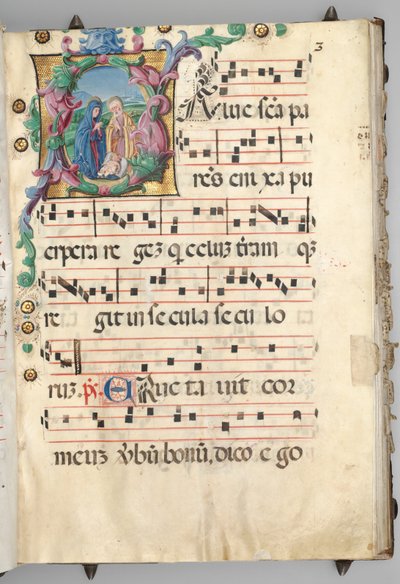 3
SAlue scā pa
rēs eni xa pu
erpera re geꝫ q̄ celuꝫ t̄ram qꝫ
re git in se cula se cu lo
ruꝫ. p̄s. ERuc ta uit cor
meuꝫ v̄bū bonū, dico e go